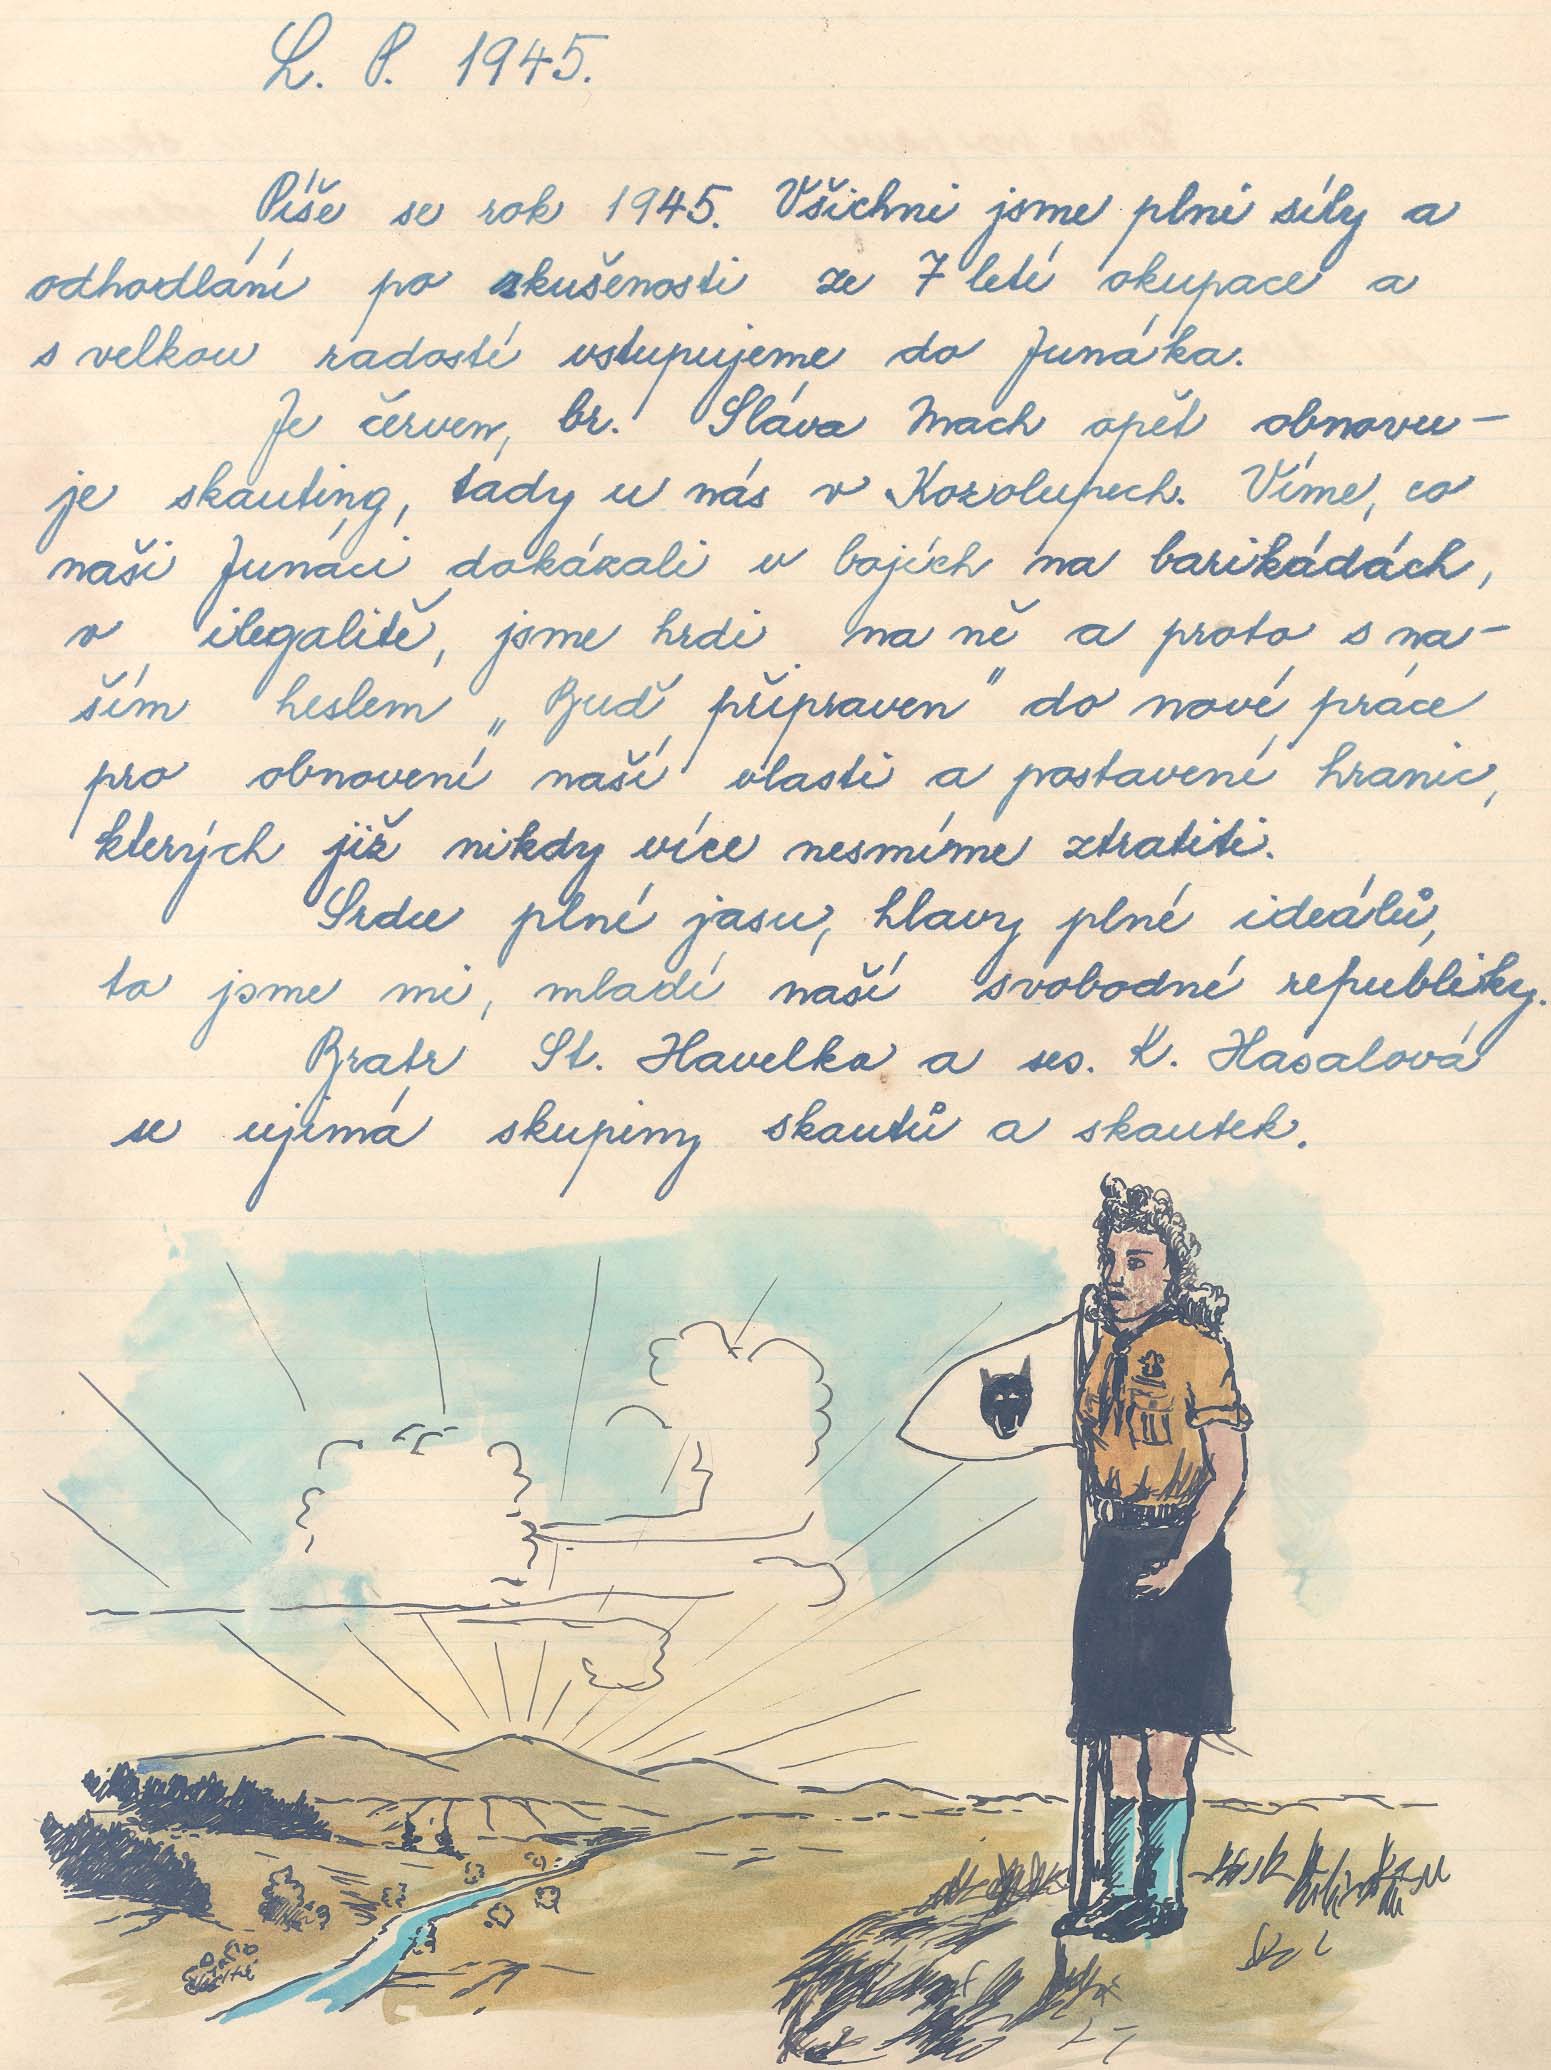 L. P. 1945.
Píše se rok 1945. Všichni jsme plni síly a
odhodlání po zkušenosti ze 7 letí okupace a
s velkou radostí vstupujeme do Junáka.
Je červen, br. Sláva Mach opět obnovu-
je skauting, tady u nás v Kozolupech. Víme, co
naši Junáci dokázali v bojích na barikádách,
v ilegalitě, jsme hrdi na ně a proto s na-
ším heslem „Buď připraven" do nové práce
pro obnovení naší vlasti a postavení hranic,
kterých již nikdy více nesmíme ztratiti.
Srdce plné jasu, hlavy plné ideálů,
to jsme mi, mladí naší svobodné republiky.
Bratr St. Havelka a ses. K. Hasalová
se ujímá skupiny skautů a skautek.